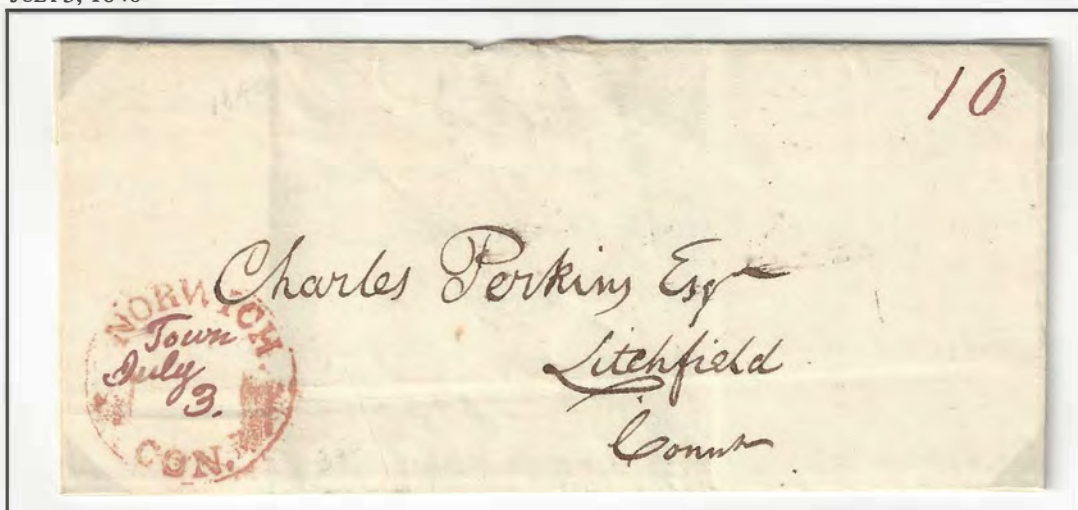 JULY 3, 1840
10
Charles Perkins Esqr
Litchfield
Connt
NORWICH
Town
July
3.
CON.